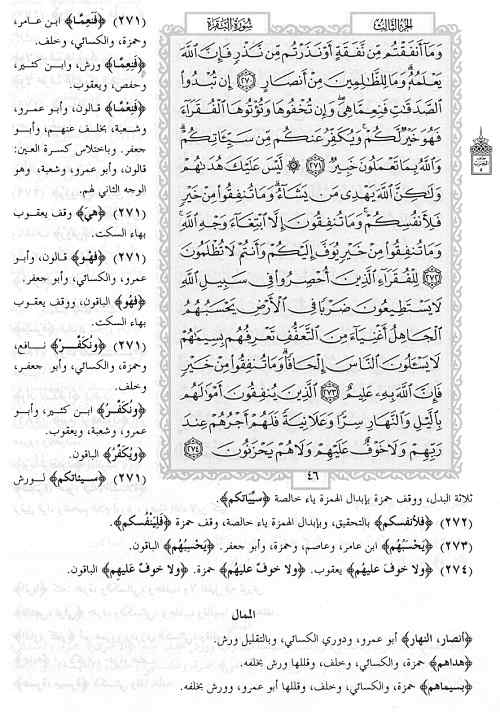 سورة البقرة
الجزء الثالث
وَمَآ أَنفَقْتُم مِّن نَّفَقَةٍ أَوْ نَذَرْتُم مِّن نَّذْرٍ فَإِنَّ ٱللَّهَ
يَعْلَمُهُۥ وَمَا لِلظَّـٰلِمِينَ مِنْ أَنصَارٍ ﴿٢٧٠﴾ إِن تُبْدُوا۟
ٱلصَّدَقَـٰتِ فَنِعِمَّا هِىَ وَإِن تُخْفُوهَا وَتُؤْتُوهَا ٱلْفُقَرَآءَ
فَهُوَ خَيْرٌ لَّكُمْ وَيُكَفِّرُ عَنكُم مِّن سَيِّـَٔاتِكُمْ
وَٱللَّهُ بِمَا تَعْمَلُونَ خَبِيرٌ ﴿٢٧١﴾ ۞ لَّيْسَ عَلَيْكَ هُدَىٰهُمْ
وَلَـٰكِنَّ ٱللَّهَ يَهْدِى مَن يَشَآءُ وَمَا تُنفِقُوا۟ مِنْ خَيْرٍ
فَلِأَنفُسِكُمْ وَمَا تُنفِقُونَ إِلَّا ٱبْتِغَآءَ وَجْهِ ٱللَّهِ
وَمَا تُنفِقُوا۟ مِنْ خَيْرٍ يُوَفَّ إِلَيْكُمْ وَأَنتُمْ لَا تُظْلَمُونَ
﴿٢٧٢﴾ لِلْفُقَرَآءِ ٱلَّذِينَ أُحْصِرُوا۟ فِى سَبِيلِ ٱللَّهِ
لَا يَسْتَطِيعُونَ ضَرْبًا فِى ٱلْأَرْضِ يَحْسَبُهُمُ
ٱلْجَاهِلُ أَغْنِيَآءَ مِنَ ٱلتَّعَفُّفِ تَعْرِفُهُم بِسِيمَـٰهُمْ
لَا يَسْـَٔلُونَ ٱلنَّاسَ إِلْحَافًا وَمَا تُنفِقُوا۟ مِنْ خَيْرٍ
فَإِنَّ ٱللَّهَ بِهِۦ عَلِيمٌ ﴿٢٧٣﴾ ٱلَّذِينَ يُنفِقُونَ أَمْوَٰلَهُم
بِٱلَّيْلِ وَٱلنَّهَارِ سِرًّا وَعَلَانِيَةً فَلَهُمْ أَجْرُهُمْ عِندَ
رَبِّهِمْ وَلَا خَوْفٌ عَلَيْهِمْ وَلَا هُمْ يَحْزَنُونَ ﴿٢٧٤﴾
٤٦
(٢٧١) ﴿فَنَعِمَّا﴾ ابن عامر،
وحمزة، والكسائي، وخلف.
﴿فَنِعِمَّا﴾ ورش، وابن كثير،
وحفص، ويعقوب.
﴿فَنِعْمَّا﴾ قالون، وأبو عمرو،
وشعبة، بخلف عنهم، وأبو
جعفر. وباختلاس كسرة العين:
قالون، وأبو عمرو، وشعبة، وهو
الوجه الثاني لهم.
(٢٧١) ﴿هِيَ﴾ وقف يعقوب
بهاء السكت.
(٢٧١) ﴿فَهْو﴾ قالون، وأبو
عمرو، والكسائي، وأبو جعفر.
﴿فَهُو﴾ الباقون، ووقف يعقوب
بهاء السكت.
(٢٧١) ﴿ونُكفِّرْ﴾ نافع،
وحمزة، والكسائي، وأبو جعفر،
وخلف.
﴿ونُكفِّرُ﴾ ابن كثير، وأبو
عمرو، وشعبة، ويعقوب.
﴿ويُكفِّرُ﴾ الباقون.
(٢٧١) ﴿سيئاتكم﴾ لورش
ثلاثة البدل، ووقف حمزة بإبدال الهمزة ياء خالصة ﴿سيِّياتكم﴾.
(٢٧٢) ﴿فلأنفسكم﴾ بالتحقيق، وبإبدال الهمزة ياء خالصة، وقف حمزة ﴿فَلِيَنْفُسِكُم﴾.
(٢٧٣) ﴿يَحْسَبُهُم﴾ ابن عامر، وعاصم، وحمزة، وأبو جعفر. ﴿يَحْسِبُهُم﴾ الباقون.
(٢٧٤) ﴿ولا خوفَ عليهُم﴾ يعقوب. ﴿ولا خوفٌ عليهُم﴾ حمزة. ﴿ولا خوفٌ عليهِم﴾ الباقون.
الممال
﴿أنصار، النهار﴾ أبو عمرو، ودوري الكسائي، وبالتقليل ورش.
﴿هداهم﴾ حمزة، والكسائي، وخلف، وقللها ورش بخلفه.
﴿بسيماهم﴾ حمزة، والكسائي، وخلف، وقللها أبو عمرو، وورش بخلفه.